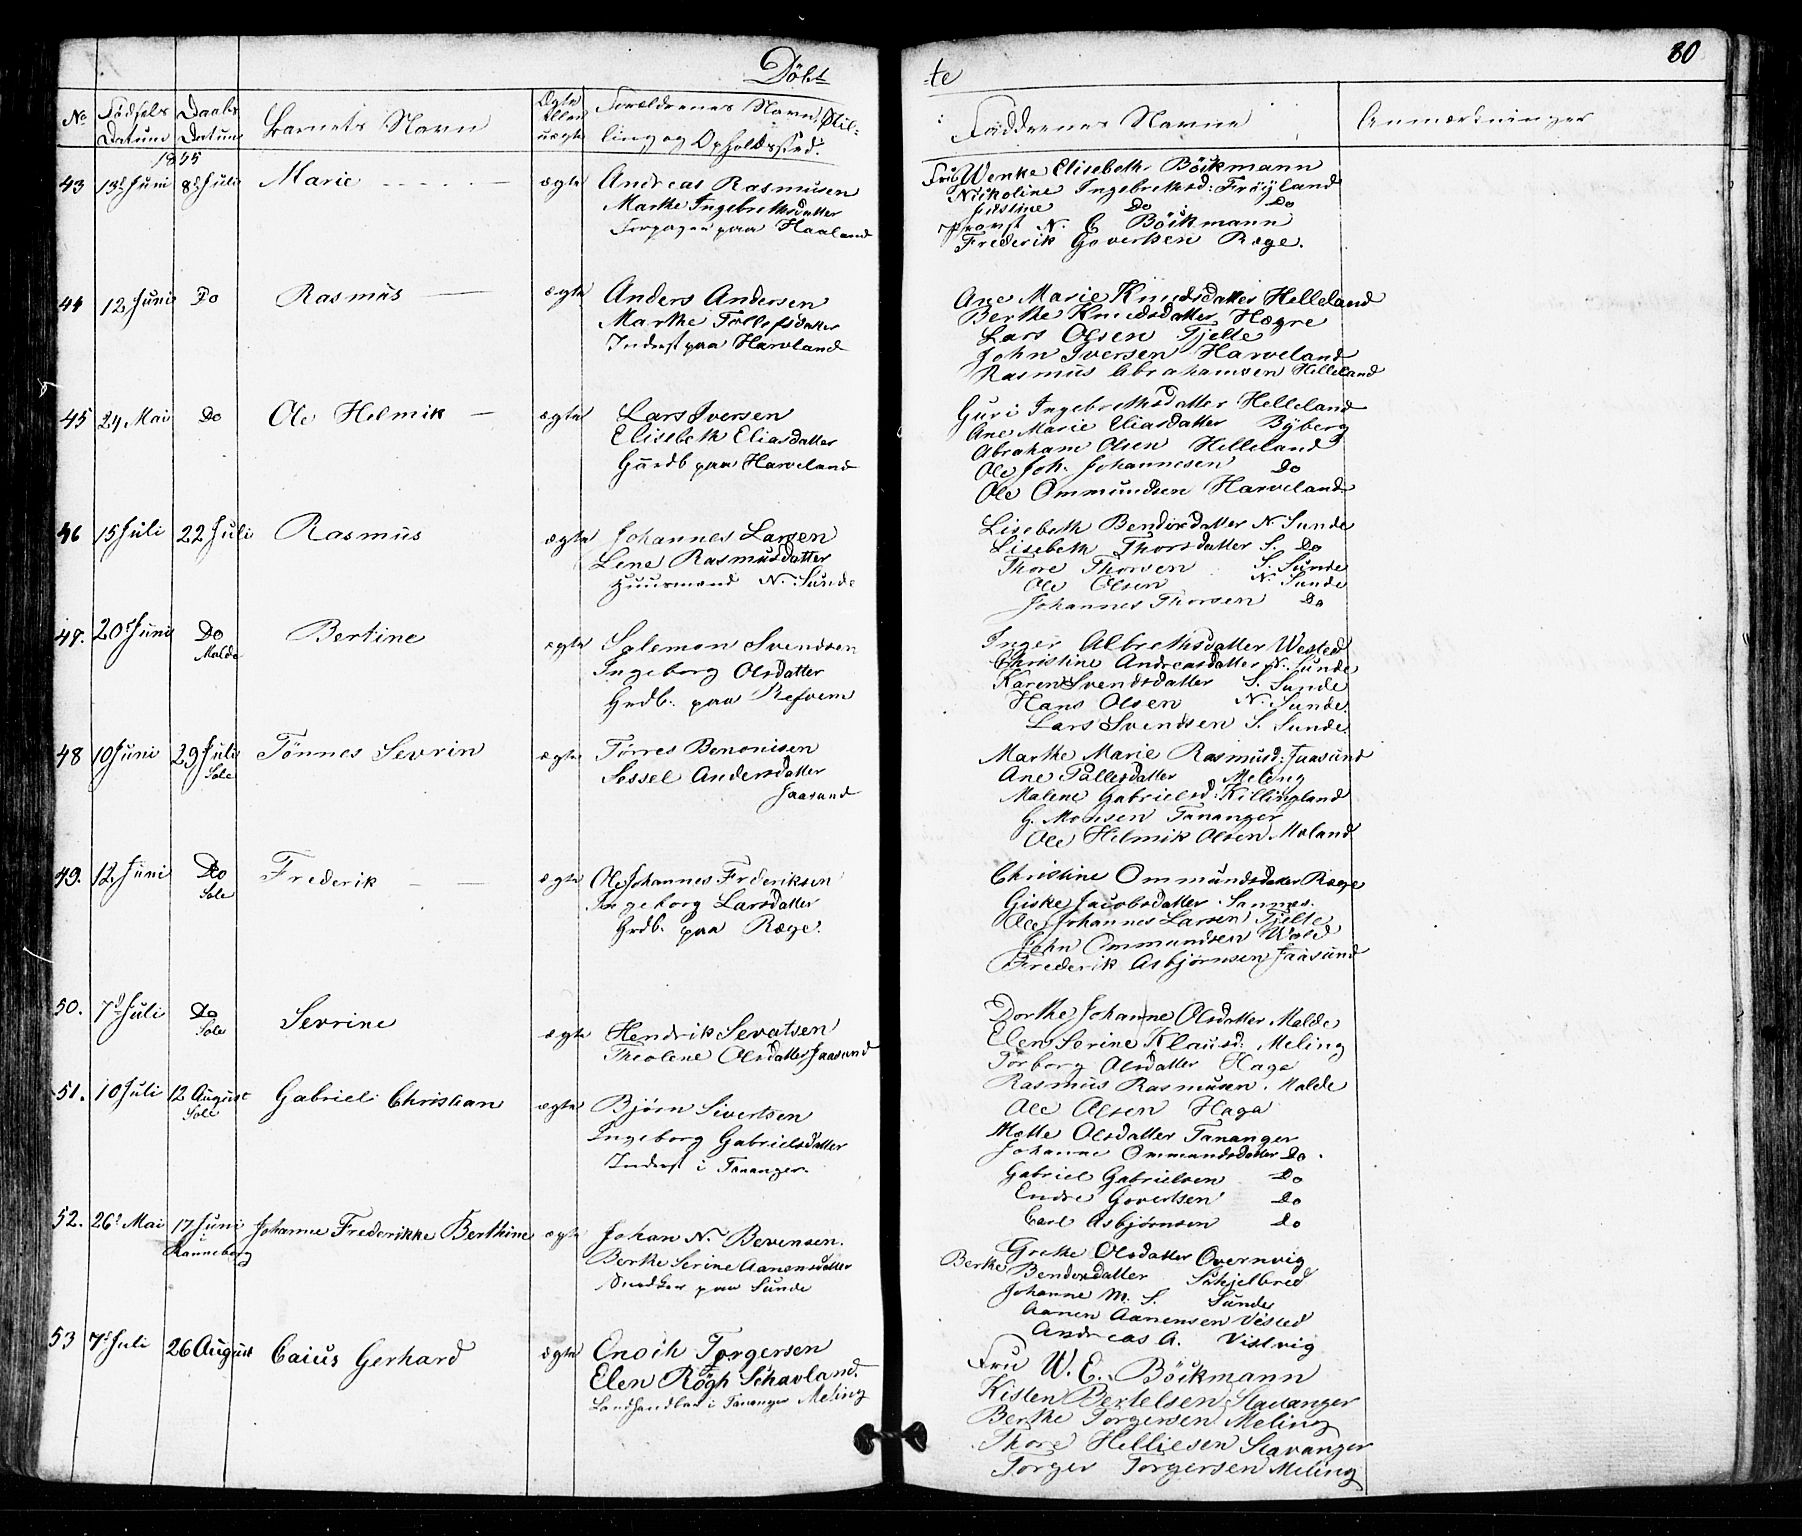 Döbt
te
80
No
Fødsels
Datum
Daabs
Datum
Barnets Navn
Ægte
Eller
uægte
Forældrenes Navn, Stil-
ling og Opholdssted.
Faddrenes Navne
Anmærkninger
1855
43 13d Juni 8d Juli Marie ægte Andreas Rasmusen
Marthe Ingebrethsdatter
Forpagter paa Haaland
Fru Wenke Elisebeth Böckmann
Nickoline Ingebrethsd: Fröyland
Justine Do Do
Provst N. E Böckmann
Frederik Govertsen Ræge.
44 12 Juni Do Rasmus ægte Anders Andersen
Marthe Tollefsdatter
Inderst paa Harvland
Ane Marie Knudsdatter Helleland
Berthe Knudsdatter Hægre
Lars Olsen Tjelte
John Iversen Harveland
Rasmus Abrahamsen Helleland
45 24 Mai Do Ole Helmik ægte Lars Iversen
Elisebeth Eliasdatter
Gaardb paa Harveland
Guri Ingebrethsdatter Helleland
Ane Marie Eliasdatter Byberg
Abraham Olsen Helleland
Ole Joh. Johannesen Do
Ole Ommundsen Harveland
46 15 Juli 22 Juli Rasmus ægte Johannes Larsen
Lene Rasmusdatter
Huusmand N. Sunde
Lisebeth Bendixdatter N. Sunde
Lisebeth Thorsdatter S. Do
Thore Thorsen S. Sunde
Ole Olsen N. Sunde
Johannes Thorsen Do
47. 20d Juni Do
Malde
Bertine ægte Salemon Svendsen
Ingeborg Olsdatter
Grdb. paa Refvem
Inger Albrethsdatter Wested
Christine Andreasdatter N. Sunde
Karen Svendsdatter S. Sunde
Hans Olsen N. Sunde.
Lars Svendsen S. Sunde.
48 10 Juni 29 Juli
Sole
Tönnes Sevrin ægte Torres Benonisen
Sessel Andersdatter
Jaasund
Marthe Marie Rasmusd: Jaasund
Ane Pallesdatter Meling
Malene Gabrielsd: Killingland
G. Monsen Tananger
Ole Helmik Olsen Moland
49. 12 Juni Do
Sole
Frederik ægte Ole Johannes Frederiksen
Ingeborg Larsdatter
Grdb. paa Ræge.
Christine Ommundsdatter Ræge
Giske Jacobsdatter Sannes.
Ole Johannes Larsen Tjelte
John Ommundsen Wold
Frederik Asbjørnsen Jaasund
50. 7d Juli Do
Sole
Sevrine ægte Hendrik Sevatsen
Theolene Olsdatter Jaasund
Dorthe Johanne Olsdatter Malde
Elen Serine Klausd: Meling
Torborg Olsdatter Haga
Rasmus Rasmusen. Malde
Ole Olsen Haga
51. 10 Juli 12 August
Sole
Gabriel Christian ægte Bjørn Sivertsen
Ingeborg Gabrielsdatter
Inderst i Tananger.
Mette Olsdatter Tananger
Johanne Ommundsdatter Do.
Gabriel Gabrielsen Do
Endre Govertsen Do
Carl Asbjørnsen Do
52. 26d Mai 17 Juni
i
Ranneberg
Johanne Frederikke Berthine ægte Johan N. Bevensen.
Berthe Serine Aanensdatter
Snedker paa Sunde
Grethe Olsdatter Overnvig
Berthe Bendixdatter Schjelbred
Johanne M. S. Sunde
Aanen Aanensen Vested
Andreas A. Vistvig
53 7d Juli 26 August Caius Gerhard ægte Enoch Torgersen
Elen Rögh Schavland.
Landhandler i Tananger Meling
Fru W. E. Böckmann
Kisten Bertelsen Stavanger
Berthe Torgersen Meling
Thore Helliesen Stavanger
Torger Torgersen Meling